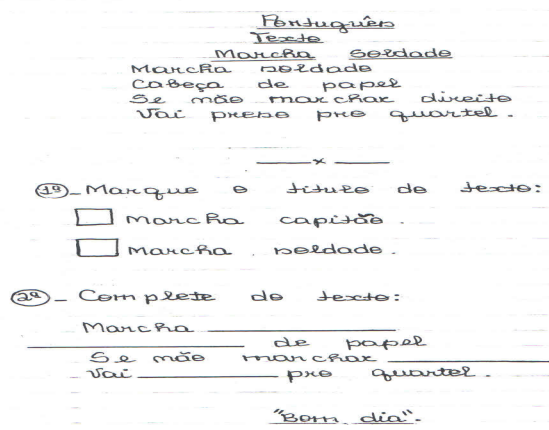 Português
Texto
Marcha Soldado
Marcha soldado
Cabeça de papel
Se não marchar direito
Vai preso pro quartel.
——x——
1ª - Marque o título do texto:
Marcha capitão.
Marcha soldado.
2ª - Complete do texto:
Marcha ________
________ de papel
Se não marchar ________
Vai ________ pro quartel.
"Bom dia".